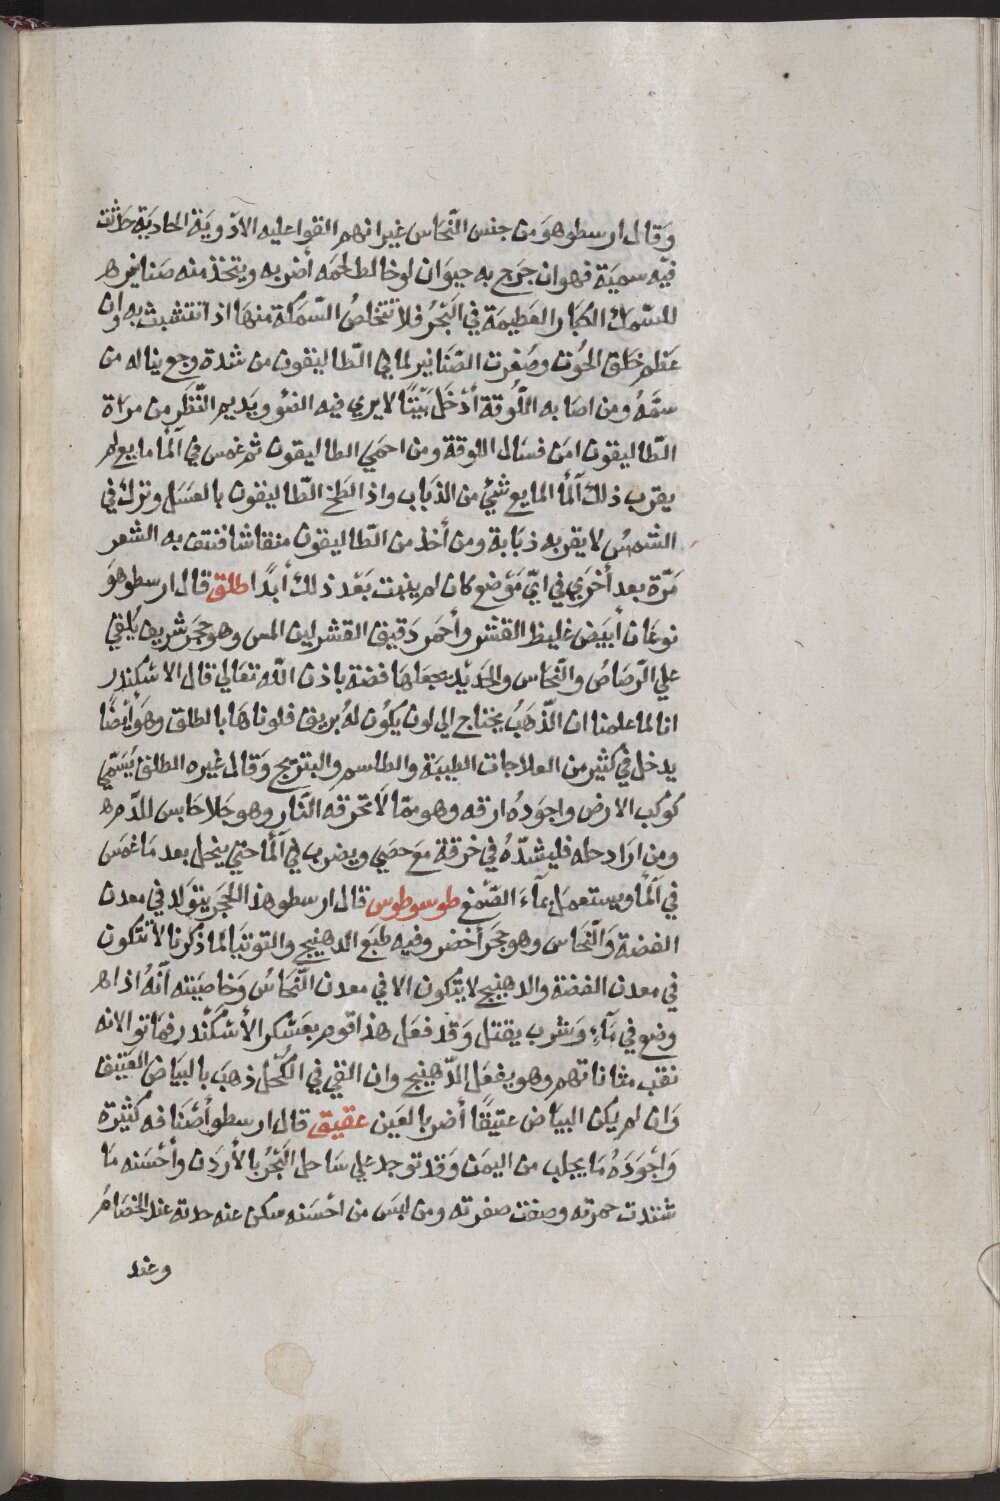 وقال ارسطو هو من جنس النحاس غير انهم القوا عليه الادوية الحادية حدثت
فيه سمية فهو ان جرح به حيوان لو خالط لحمه أضر به ويتخذ منه صنانير
للسمك الكبار العظيمة في البحر فلا تتخلص السمكة منها اذ انتشبت به وان
عظم خلق الحوت وصغرت الصنانير لما في الطاليقون من شدة وجع يناله من
سمه ومن اصابه اللوقة أدخل بيتا لا يري فيه الضو ويديم النظر من مراة
الطاليقون امن فسال اللوقة ومن احمي الطاليقون ثم غمس في الما مايع لم
يقرب ذلك الما المايع شئ من الذباب واذا لطخ الطاليقون بالعسل وترك في
الشمس لا يقربه ذبابة ومن أخذ من الطاليقون منقاشا فنتف به الشعر
مرة بعد أخري في اي موضع كان لم ينبت بعد ذلك أبدا طلق قال ارسطو هو
نوعان أبيض غليظ القشر وأحمر دقيق القشر لين المس وهو حجر شريف يلقي
علي الرصاص والنحاس والحديد يجعلها فضة باذن الله تعالي قال الاسكندر
انا لما علمنا ان الذهب يحتاج الي لون يكون له بريق فلوناها بالطلق وهو أيضا
يدخل في كثير من العلاجات الطيبة والطلسم والبترنج وقال غيره الطلق يسمي
كوكب الارض واجوده ارقه وهو مما لا تحرقه النار وهو جلا حابس للدم
ومن اراد حله فليشده في خرقة مع حصي ويضرب في الما حتي ينحل بعد ما غمس
في الما ويستعمل بماء الصمغ طوسوطوس قال ارسطو هذا الحجر يتولد في معدن
الفضة والنحاس وهو حجر أخضر وفيه طبع الدهنيج والتوتيا لما ذكرنا لا تتكون
في معدن الفضة والدهنيج لا يتكون الا في معدن النحاس وخاصيته أنه اذا
وضع في ماء وشرب يقتل وقد فعل هذا قوم بعسكر الأسكندر فماتوا لانه
نقب مثاناتهم وهو يفعل الدهنيج وان القي في الكحل ذهب بالبياض العتيق
وان لم يكن البياض عتيقا أضر بالعين عقيق قال ارسطو أصنافه كثيرة
وأجوده ما يجلب من اليمن وقد توجد علي ساحل البحر بالأردن وأحسنه ما
شتدت حمرته وصفت صفرته ومن لبس من احسنه سكن عنه حدته عند الخصام
وعند